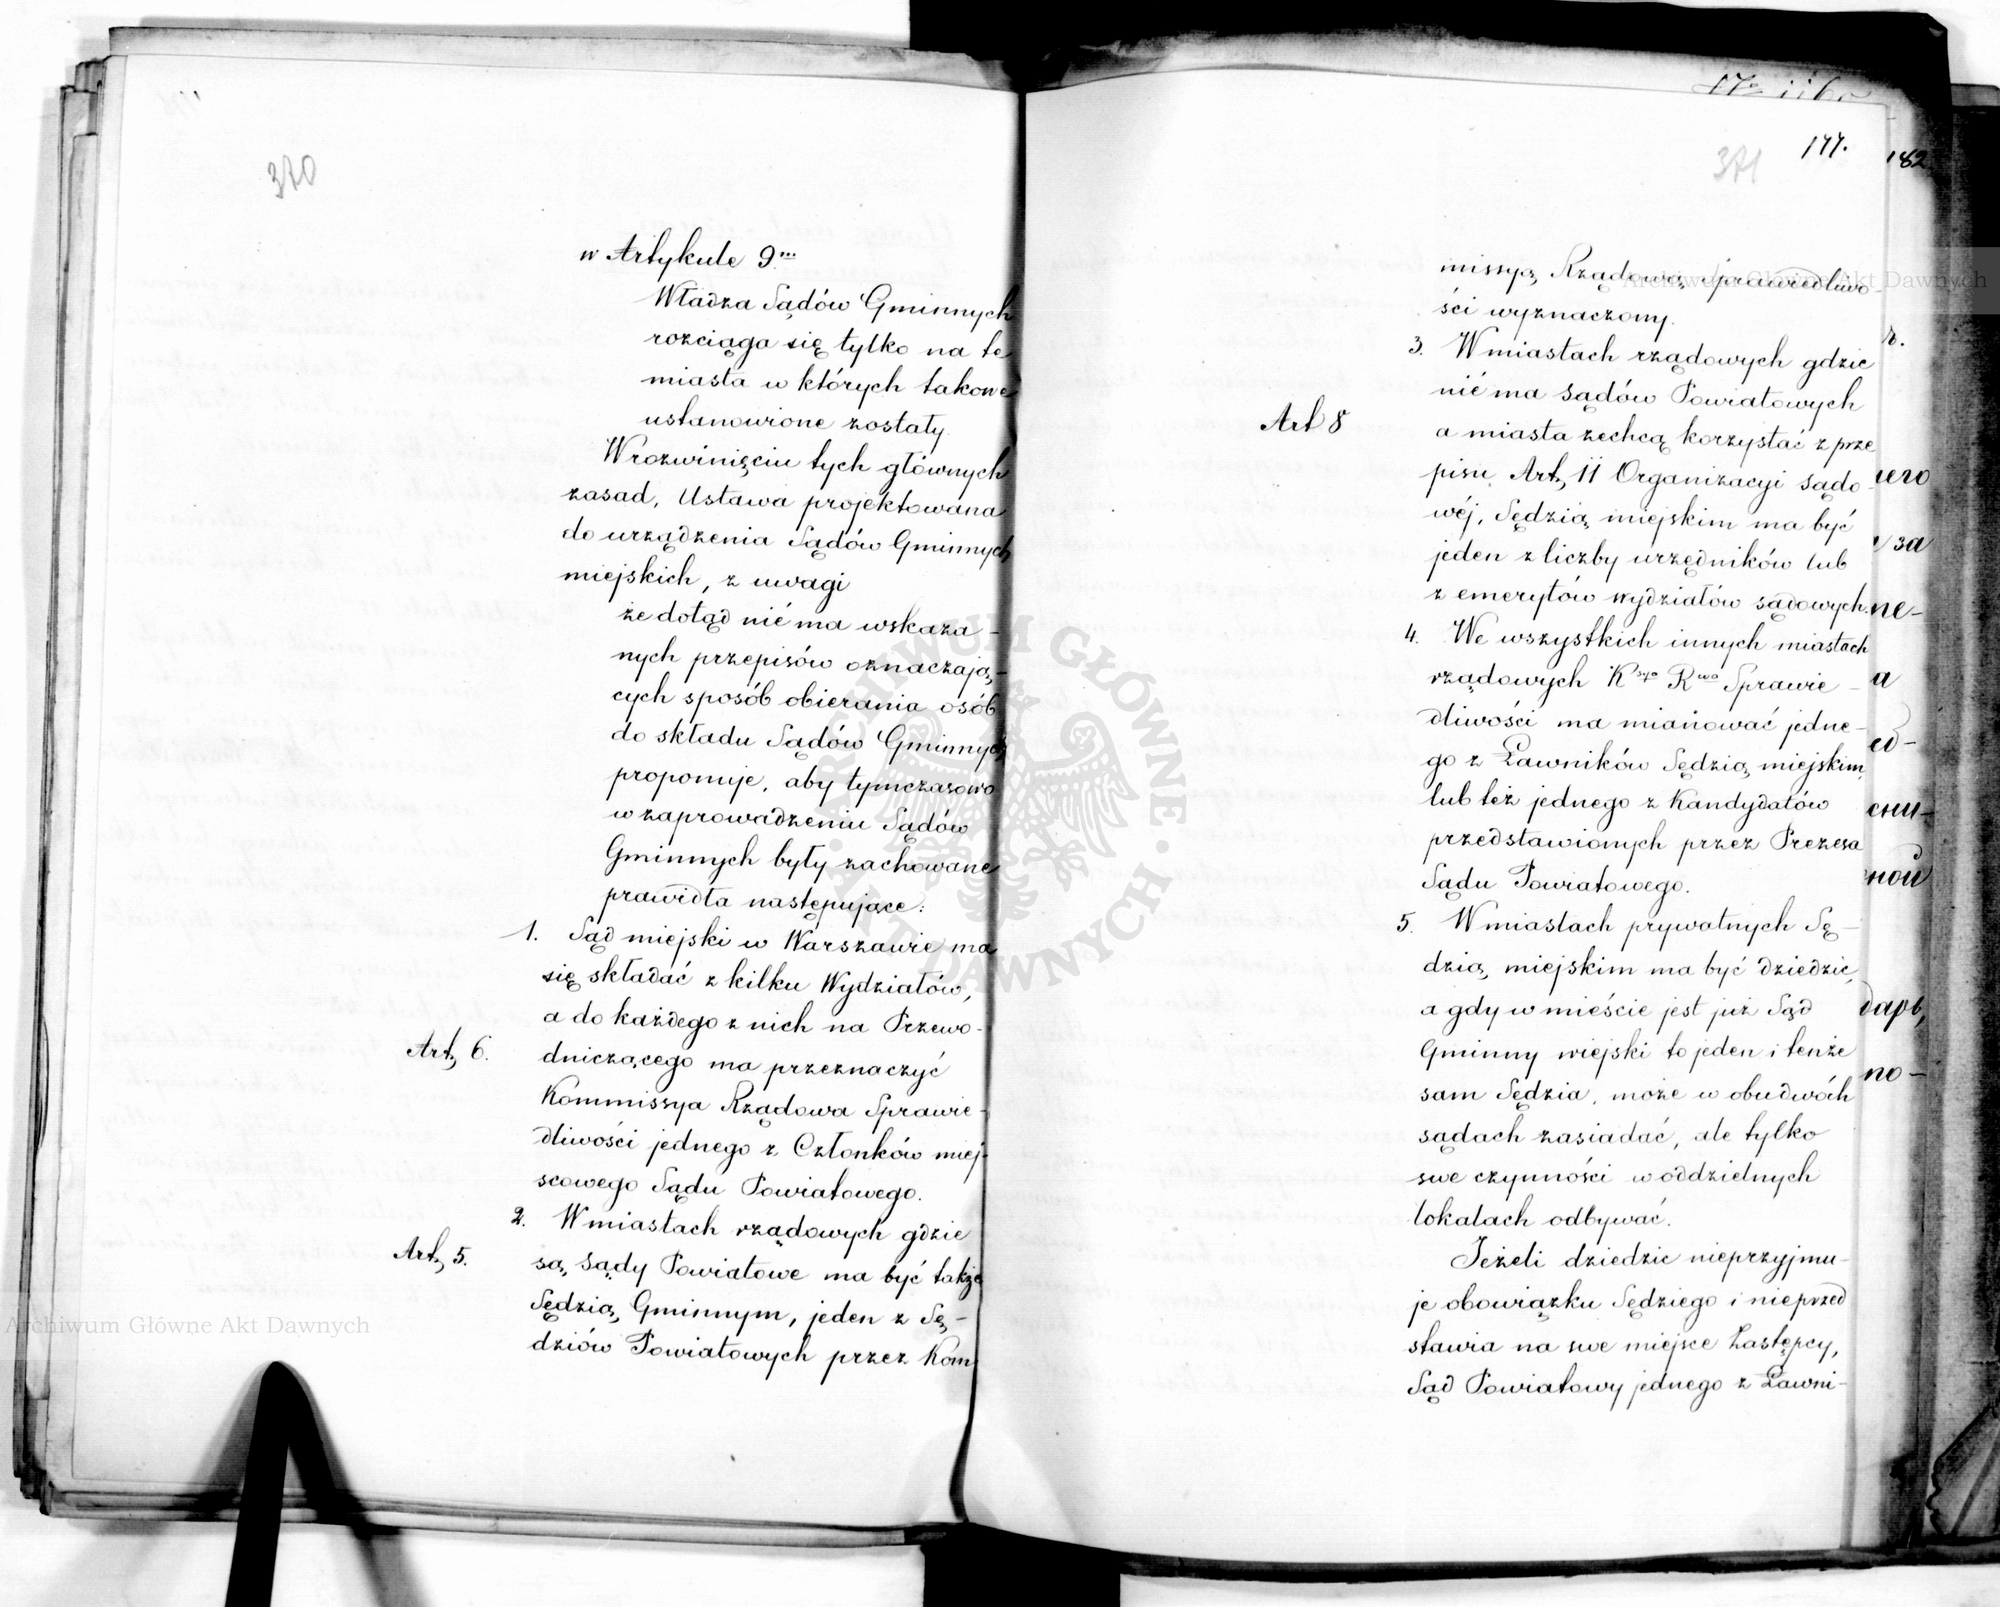 370
w Artykule 9m
Władza Sądów Gminnych
rozciąga się tylko na te
miasta w których takowe
ustanowione zostały.
W rozwinięciu tych głównych
zasad, Ustawa projektowana
do urządzenia Sądów Gminnych
miejskich, z uwagi
że dotąd nié ma wskaza-
nych przepisów oznaczają-
cych sposób obierania osób
do składu Sądów Gminnych
proponuje, aby tymczasowo
w zaprowadzeniu Sądów
Gminnych były zachowane
prawidła następujące:
1. Sąd miejski w Warszawie ma
się składać z kilku Wydziałów,
a do każdego z nich na Przewo-
Art, 6.
dniczącego ma przeznaczyć
Kommissya Rządowa Sprawie-
dliwości jednego z Członków miej-
scowego Sądu Powiatowego.
2. W miastach rządowych gdzie
Art, 5.
są, Sądy Powiatowe ma być także
Sędzią, Gminnym, jeden z Sę-
dziów Powiatowych przez Kom
177.
371
182
missyą, Rządową, Sprawiedliwo-
ści wyznaczony.
3. W miastach rządowych gdzie
nié ma sądów Powiatowych
Art 8
a miasta zechcą korzystać z prze
pisu Art, 11 Organizacyi sądo-
wéj, Sędzią, miejskim ma być
jeden z liczby urzędników lub
z emerytów wydziałów sądowych.
4. We wszystkich innych miastach
rządowych Ksya Rwa Sprawie-
dliwości ma mianować jedne-
go z Ławników Sędzią, miejskim,
lub też jednego z Kandydatów
przedstawionych przez Prezesa
Sądu Powiatowego.
5. W miastach prywatnych Sę-
dzią, miejskim ma być dziedzic,
a gdy w mieście jest już Sąd
Gminny wiejski to jeden i tenże
sam Sędzia, może w obudwóch
sądach zasiadać, ale tylko
swe czynności w oddzielnych
lokalach odbywać.
Jeżeli dziedzic nieprzyjmu-
je obowiązku Sędziego i nieprzed
stawia na swe miejsce Zastępcy,
Sąd Powiatowy jednego z Ławni-
его
за
не-
а
ной
дарь,
но-
Archiwum Główne Akt Dawnych
Archiwum Główne Akt Dawnych
ARCHIWUM GŁÓWNE · AKT DAWNYCH ·